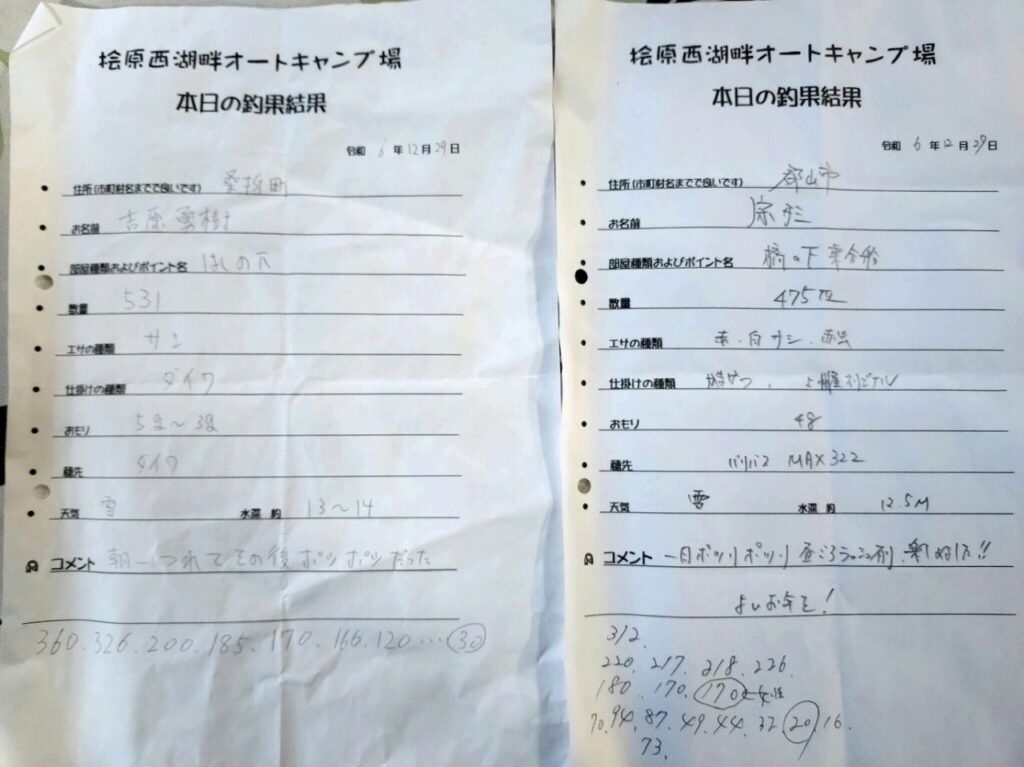 桧原西湖畔オートキャンプ場
本日の釣果結果
令和 6 年 12 月 29 日
住所(市町村名までで良いです) 桑折町
お名前 吉原 勇樹
部屋種類およびポイント名 はしの穴
数量 531
エサの種類 サシ
仕掛けの種類 ダイワ
おもり 5g〜3g
穂先 ダイワ
天気 雪 水深 約 13〜14
コメント 朝一つれてその後ポツポツだった
360.326.200.185.170.166.120…30
桧原西湖畔オートキャンプ場
本日の釣果結果
令和 6 年 12 月 29 日
住所(市町村名までで良いです) 郡山市
お名前
部屋種類およびポイント名 橋の下 乗合船
数量 475
エサの種類 赤.白サシ.赤虫
仕掛けの種類 オリジナル
おもり 4g
穂先 バリバス MAX322
天気 雪 水深 約 12.5M
コメント 一日ポツリポツリ 昼ごろラッシュ有り、楽しめました!!
よいお年を!
312.
220.217.218.226.
180.170.170←女性
70.94.87.49.44.32 20.16.
73.